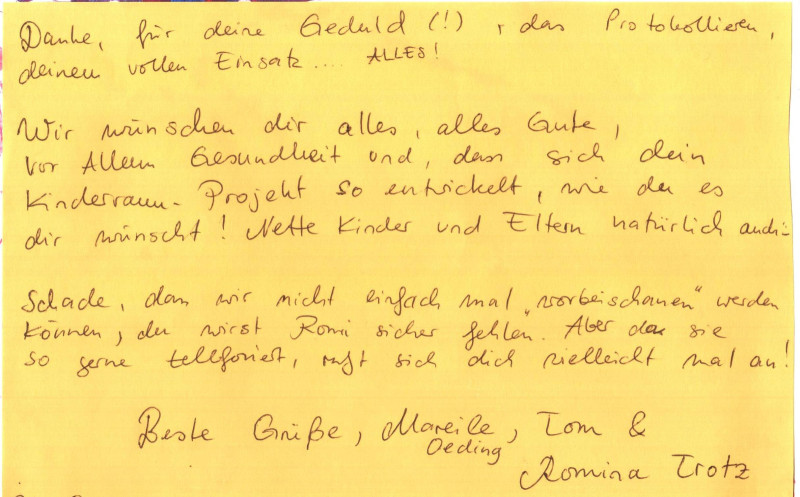 Danke, für deine Geduld (!), das Protokollieren,
deinen vollen Einsatz.... ALLES!
Wir wünschen dir alles, alles Gute,
vor Allem Gesundheit und, dass sich dein
Kinderraum-Projekt so entwickelt, wie du es
dir wünscht! Nette Kinder und Eltern natürlich auch:
Schade, dass wir nicht einfach mal „vorbeischauen“ werden
können, du wirst Romi sicher fehlen. Aber da sie
so gerne telefoniert, ruft sich dich vielleicht mal an!
Beste Grüße, Mareile, Tom &
Oeding
Romina Trotz